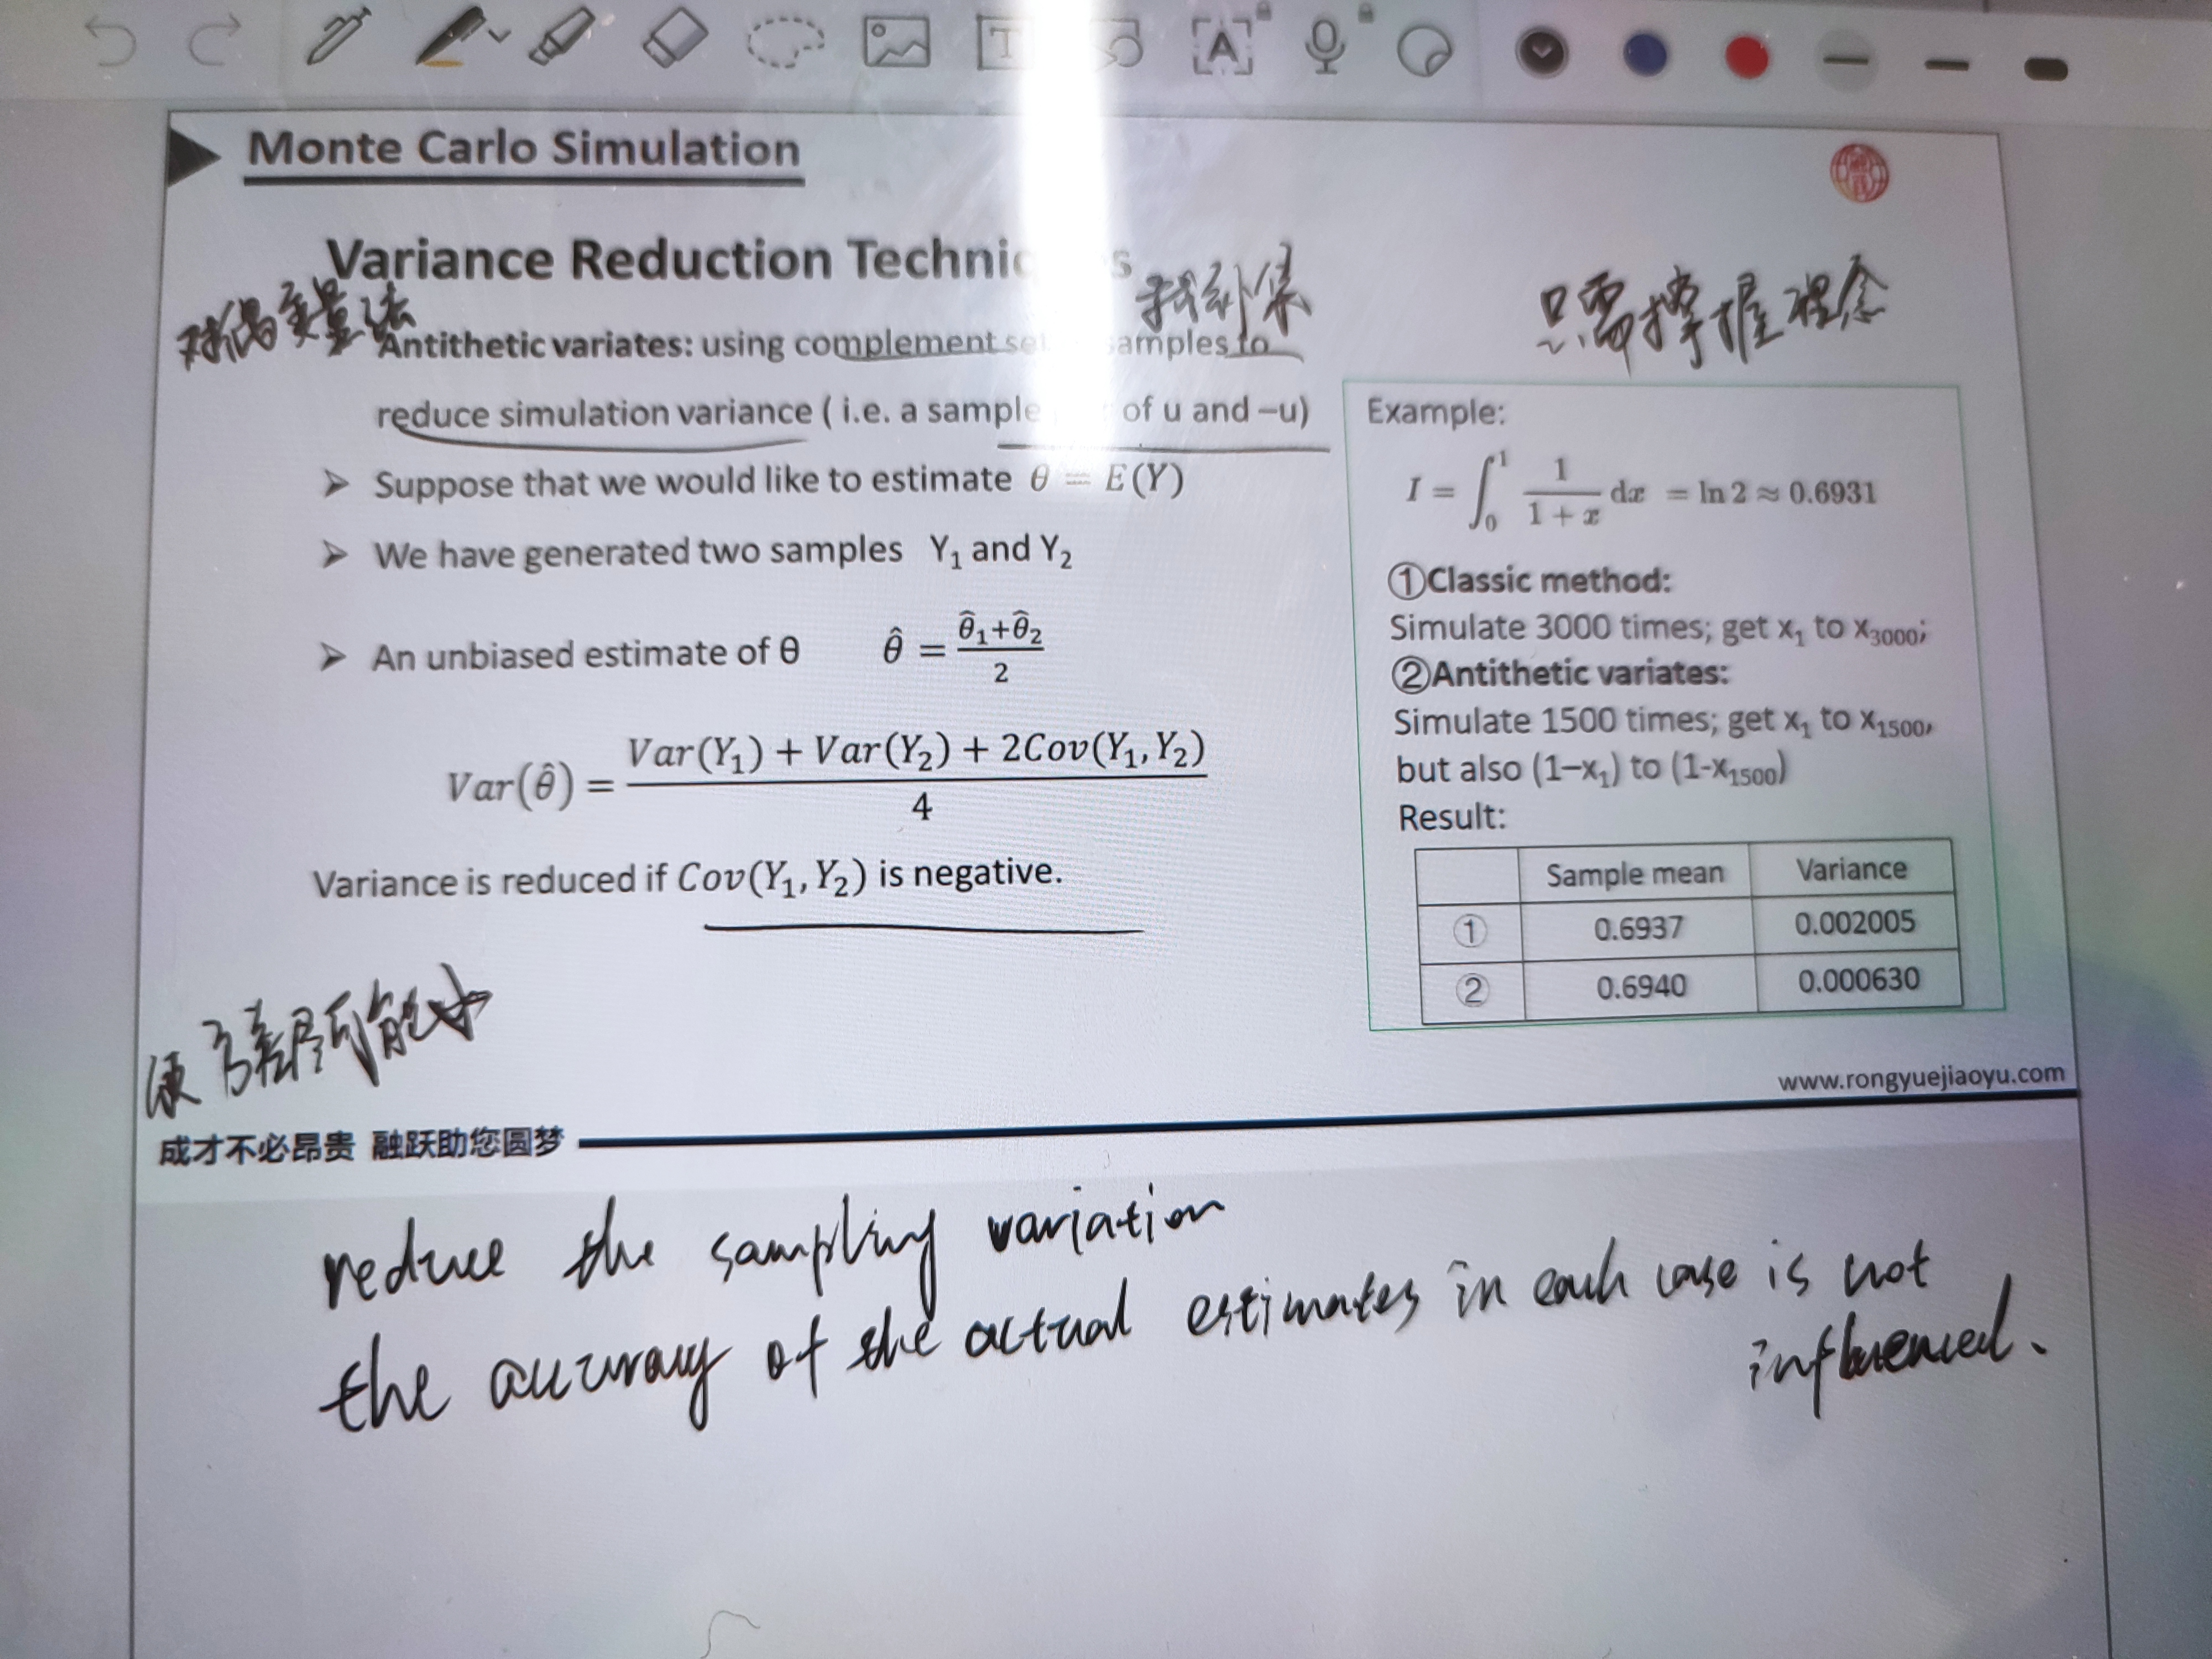 Monte Carlo Simulation
Variance Reduction
对偶变量法
找补集
只需掌握理念
Antithetic variates: using complement samples to
reduce simulation variance ( i.e. a sample of u and –u)
➤ Suppose that we would like to estimate θ = E(Y)
➤ We have generated two samples Y₁ and Y₂
➤ An unbiased estimate of θ θ̂ = (θ̂₁+θ̂₂)/2
Var(θ̂) = (Var(Y₁) + Var(Y₂) + 2Cov(Y₁, Y₂))/4
Variance is reduced if Cov(Y₁, Y₂) is negative.
使方差尽可能小
Example:
I = ∫₀¹ 1/(1 + x) dx = ln 2 ≈ 0.6931
①Classic method:
Simulate 3000 times; get x₁ to x₃₀₀₀;
②Antithetic variates:
Simulate 1500 times; get x₁ to x₁₅₀₀,
but also (1–x₁) to (1-x₁₅₀₀)
Result:
Sample mean Variance
① 0.6937 0.002005
② 0.6940 0.000630
www.rongyuejiaoyu.com
成才不必昂贵 融跃助您圆梦
reduce the sampling variation
the accuracy of the actual estimates in each case is not
influenced.